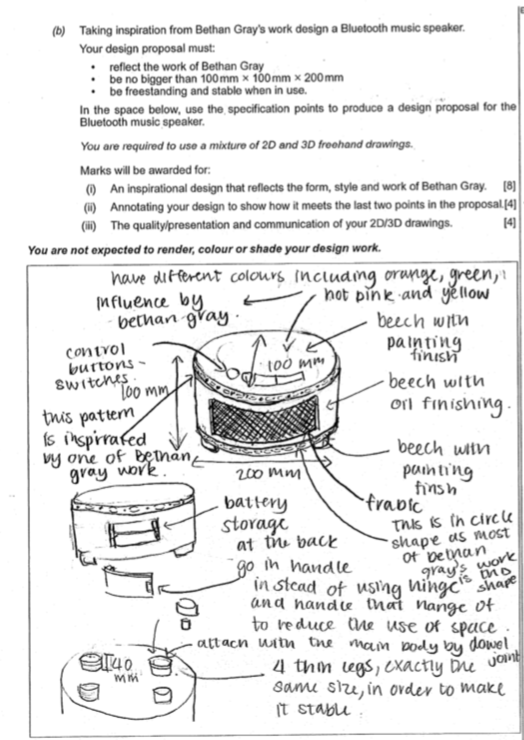 (b) Taking inspiration from Bethan Gray's work design a Bluetooth music speaker.
Your design proposal must:
• reflect the work of Bethan Gray
• be no bigger than 100mm × 100mm × 200mm
• be freestanding and stable when in use.
In the space below, use the specification points to produce a design proposal for the
Bluetooth music speaker.
You are required to use a mixture of 2D and 3D freehand drawings.
Marks will be awarded for:
(i) An inspirational design that reflects the form, style and work of Bethan Gray. [8]
(ii) Annotating your design to show how it meets the last two points in the proposal. [4]
(iii) The quality/presentation and communication of your 2D/3D drawings. [4]
You are not expected to render, colour or shade your design work.
have different colours including orange, green,
hot pink and yellow
Influence by
bethan gray.
beech with
painting
finish
control
buttons -
switches.
100 mm
100 mm
beech with
oil finishing.
this pattern
is inspirated
by one of Bethan
gray work.
200 mm
beech with
painting
finsh
frabic
This is in circle
shape as most
of bethan
gray's work
is this
shape
battery
storage
at the back
go in handle
in stead of using hinge
and handle that hange of
to reduce the use of space.
attach with the main body by dowel
joint
40
mm
4 thin legs, exactly the
same size, in order to make
it stable.